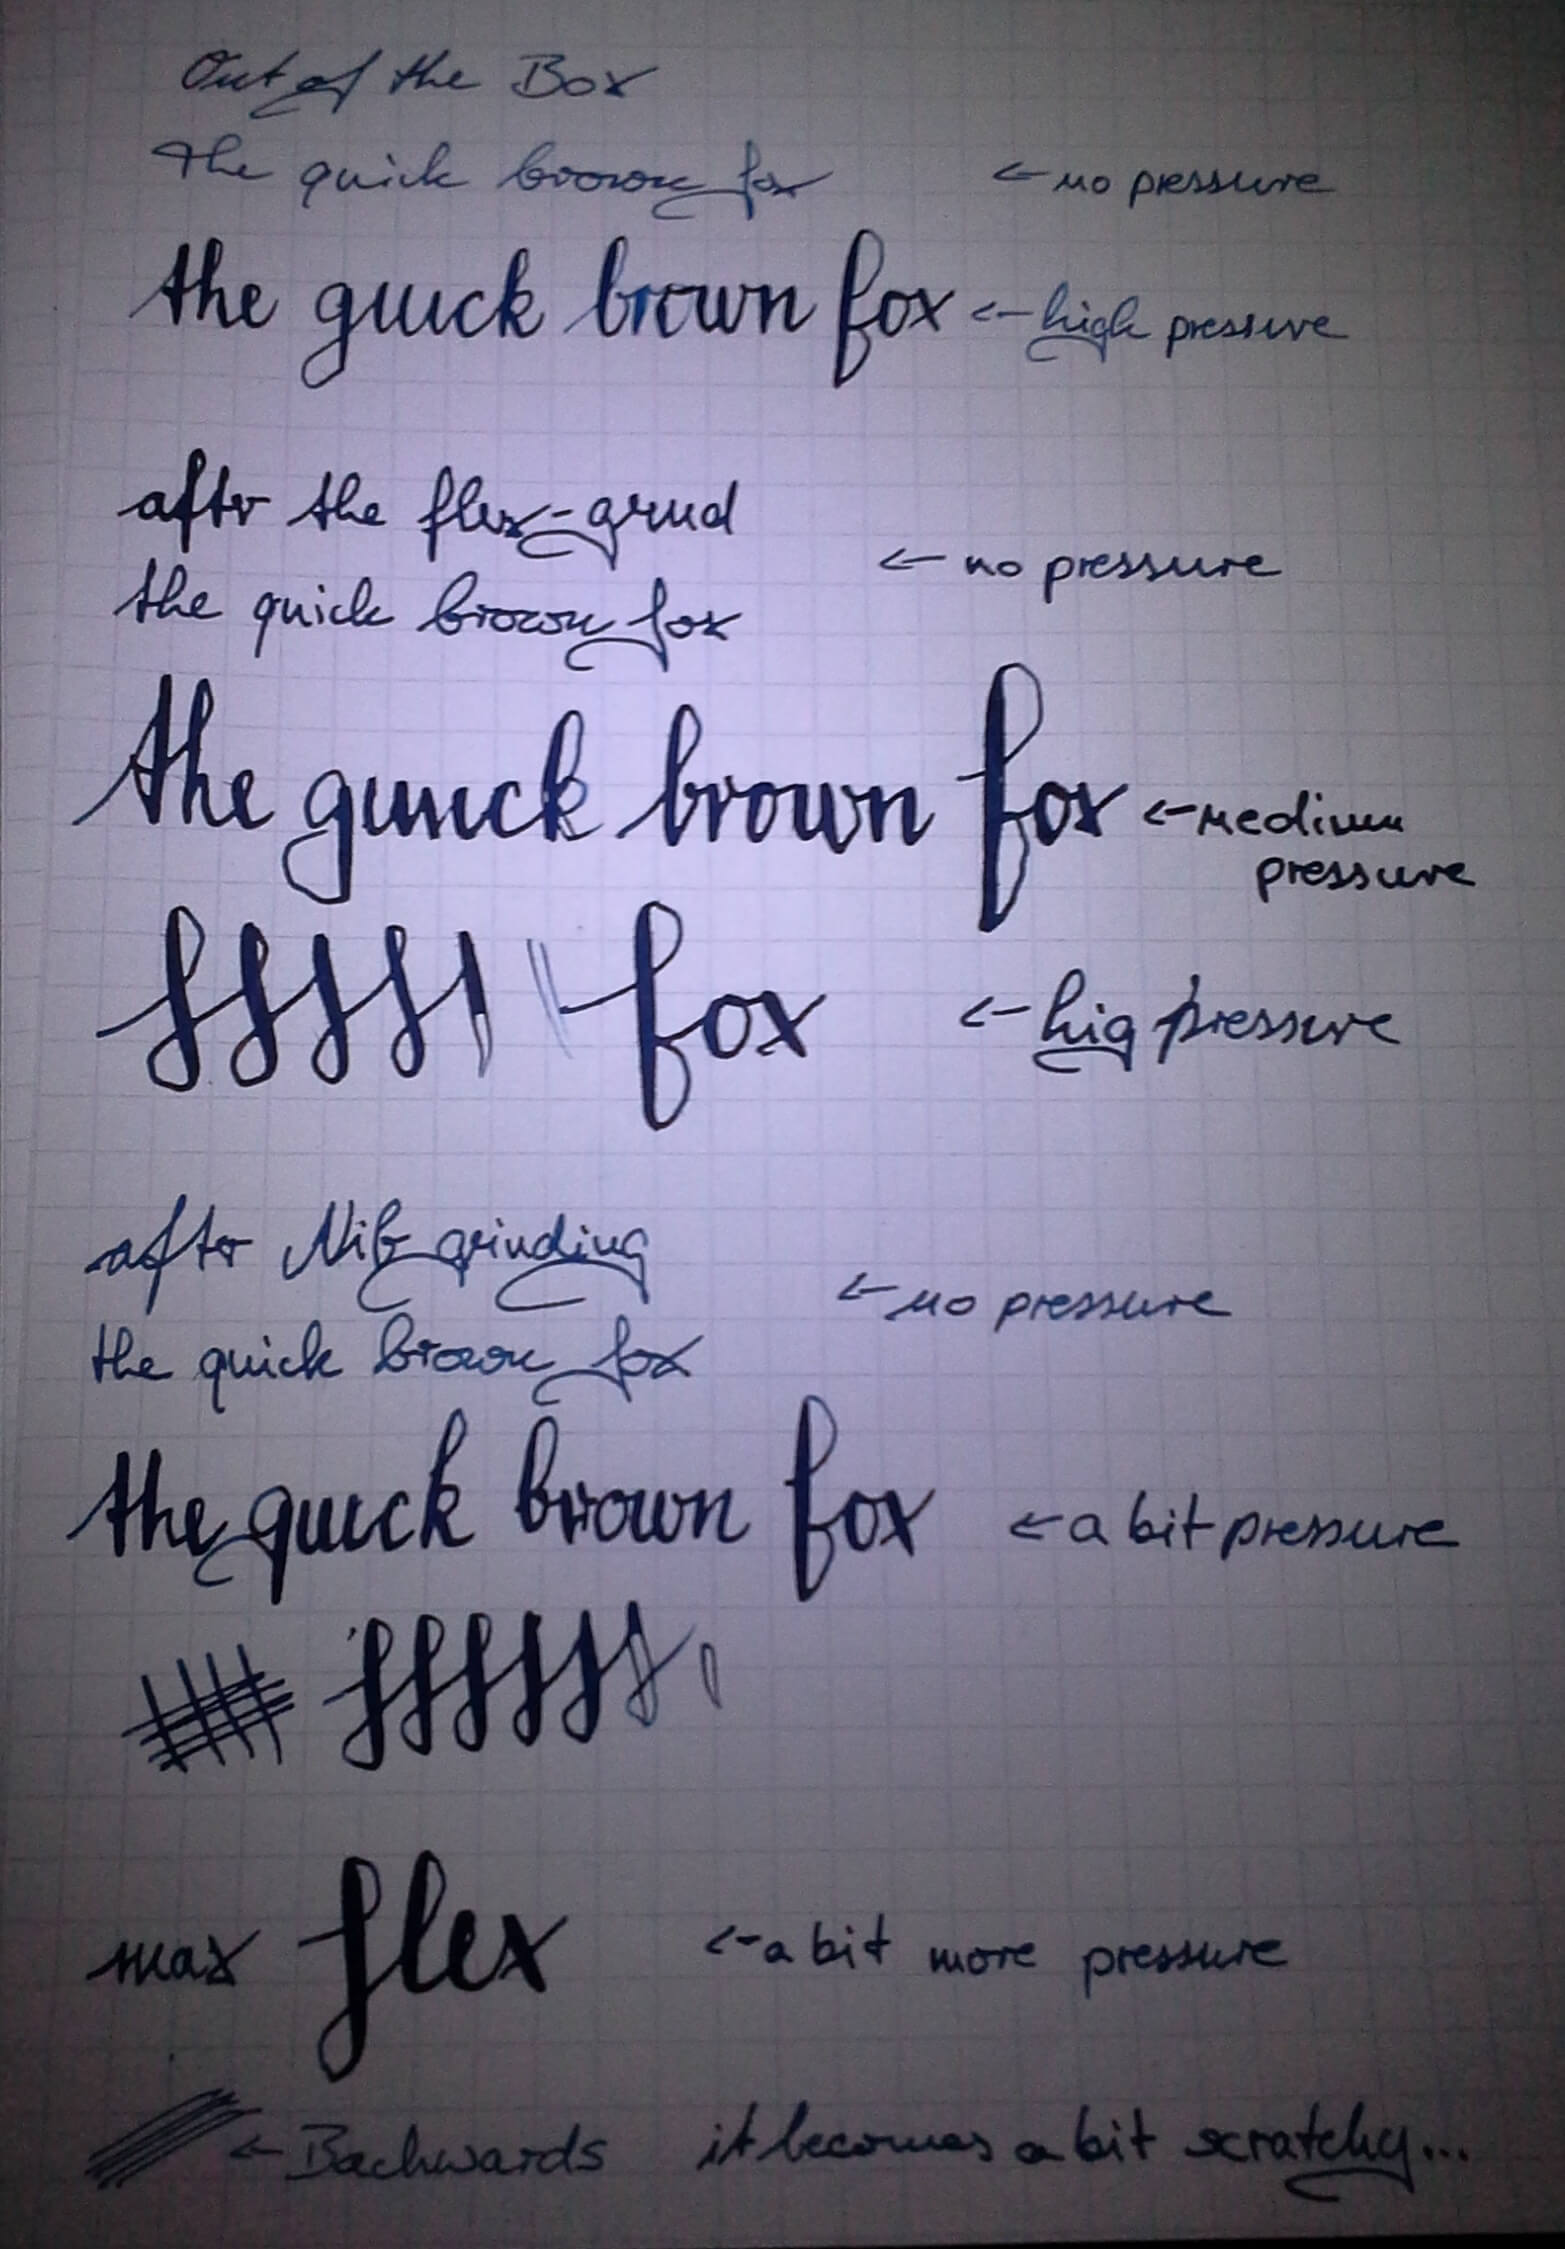 Out of the Box
The quick brown fox ← no pressure
the quick brown fox ← high pressure
after the flex-grind
← no pressure
the quick brown fox
the quick brown fox ← medium
pressure
fffff fox ← hig pressure
after Nib grinding
← no pressure
the quick brown fox
the quick brown fox ← a bit pressure
ffffff
max flex ← a bit more pressure
← Backwards it becomes a bit scratchy...